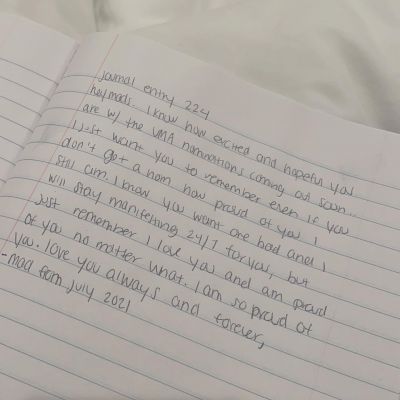 journal entry 224
hey mads. I know how excited and hopeful you
are w/ the VMA nominations coming out soon...
I just want you to remember even if you
don't get a nom how proud of you I
still am. I know you want one bad and I
will stay manifesting 24/7 for you, but
just remember I love you and am proud
of you no matter what. I am so proud of
you. love you always and forever,
-mad from july 2021